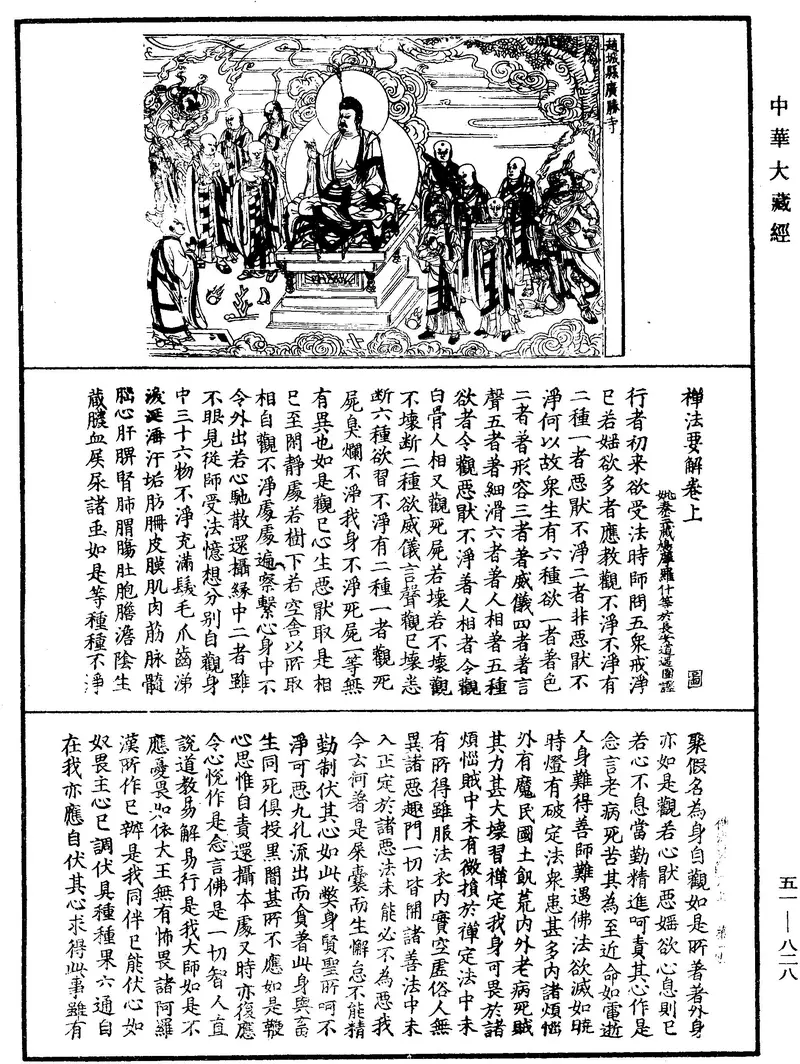 中華大藏經
趙城縣廣勝寺
禪法要解卷上 圖
姚秦三藏鳩摩羅什等於長安逍遥園譯
行者初来欲受法時師問五衆戒淨
已若婬欲多者應教觀不淨不淨有
二種一者惡猒不淨二者非惡猒不
淨何以故衆生有六種欲一者著色
二者著形容三者著威儀四者著言
聲五者著細滑六者著人相著五種
欲者令觀惡猒不淨著人相者令觀
白骨人相又觀死屍若壞若不壞觀
不壞斷二種欲威儀言聲觀已壞悉
断六種欲習不淨有二種一者觀死
屍臭爛不淨我身不淨死屍一等無
有異也如是觀已心生惡猒取是相
已至閑靜處若樹下若空舍以所取
相自觀不淨處處遍察繫心身中不
令外出若心馳散還攝緣中二者雖
不眼見從師受法憶想分别自觀身
中三十六物不淨充滿髮毛爪齒涕
淚涎洟汗垢肪𦙽皮膜肌肉筋脉髓
腦心肝脾腎肺胃腸肚胞膽澹陰生
藏膿血屎尿諸虫如是等種種不淨
聚假名為身自觀如是所著著外身
亦如是觀若心猒惡婬欲心息則已
若心不息當勤精進呵責其心作是
念言老病死苦其為至近命如電逝
人身難得善師難遇佛法欲滅如曉
時燈有破定法衆患甚多内諸煩惱
外有魔民國土飢荒内外老病死賊
其力甚大壞習禪定我身可畏於諸
煩惱賊中未有微損於禪定法中未
有所得雖服法衣内實空虛俗人無
異諸惡趣門一切皆開諸善法中未
入正定於諸惡法未能必不為惡我
今云何著是屎囊而生懈怠不能精
勤制伏其心如此弊身賢聖所呵不
淨可惡九孔流出而貪著此身與畜
生同死俱投黑闇甚所不應如是鞭
心思惟自責還攝本處又時亦復應
令心悅作是念言佛是一切智人直
說道教易解易行是我大師如是不
應憂畏如依大王無有怖畏諸阿羅
漢所作已辦是我同伴已能伏心如
奴畏主心已調伏具種種果六通自
在我亦應自伏其心求得此事雖有
五一—八二八